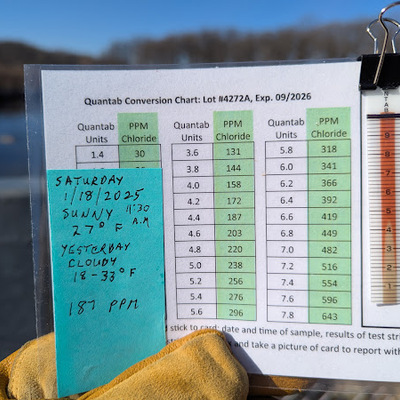 Quantab Conversion Chart: Lot #4272A, Exp. 09/2026
Quantab Units PPM Chloride
1.4 30
Quantab Units PPM Chloride
3.6 131
3.8 144
4.0 158
4.2 172
4.4 187
4.6 203
4.8 220
5.0 238
5.2 256
5.4 276
5.6 296
Quantab Units .PPM Chloride
5.8 318
6.0 341
6.2 366
6.4 392
6.6 419
6.8 449
7.0 482
7.2 516
7.4 554
7.6 596
7.8 643
SATURDAY
1/18/2025
SUNNY 11:30
A.M
27° F
YESTERDAY
CLOUDY
18-33°F
187 PPM
stick to card; date and time of sample, results of test
and take a picture of card to report
9
8
7
6
5
4
3
2
1